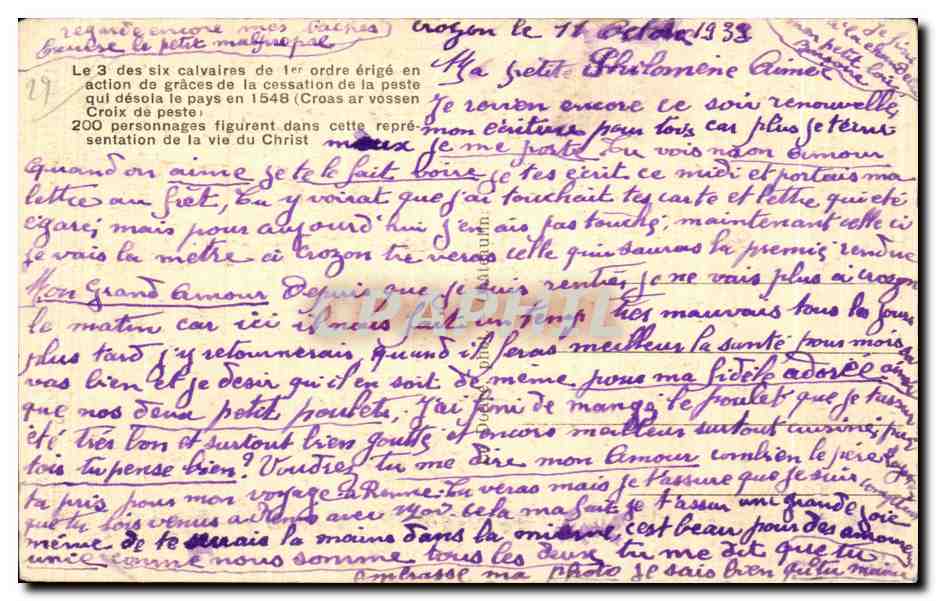 regarde encore mes taches
Excuse le petit malpropre
Crozon le 11 Octobre 1939
29
Le 3 des six calvaires de 1er ordre érigé en
action de grâces de la cessation de la peste
qui désola le pays en 1548 (Croas ar vossen
Croix de peste)
200 personnages figurent dans cette repré-
sentation de la vie du Christ
Ma petite Philomène Aimée
Je revien encore ce soir renouvelle
mon écriture pour toi, car plus je
mieux je me porte tu vois mon amour
quand on aime je te le fait voire je t'es écrit ce midi et portais ma
lettre au frêt, tu y voirat que j'ai touchait tes carte et lettre qui été
égaré, mais pour aujourd'hui j'en ais pas touché, maintenant celle ci
je vais la mêtre à Crozon tu veras celle qui sauras la premis rendue
Mon Grand amour Depuis que je suis rentré, je ne vais plus à Crozon
le matin car ici il nous fait un temp très mauvais tous les jours
plus tard j'y retournerais quand il feras meilleur la santé pour mois
vas bien et je desir qu'il en soit de même pour ma fidèle adorée ainsi
que nos deux petit poulets, J'ai fini de mangé le poulet que je t'assur
été très bon et surtout bien goutté et encors meilleur surtout cuisiné par
tois tu pense bien? Voudrez tu me dire mon Amour combien le père
ta pris pour mon voyage à Renne. tu veras mais je t'assure que je suis
que tu sois venus à Renne avec moi cela ma fait je t'assur une grande joie
même de te serrais la mains dans la mienne, c'est beau pour des amoureux
unie comme nous somme tous les deux tu me dit que tu
embrasse ma photo je sais bien que tu
CPAPHIL